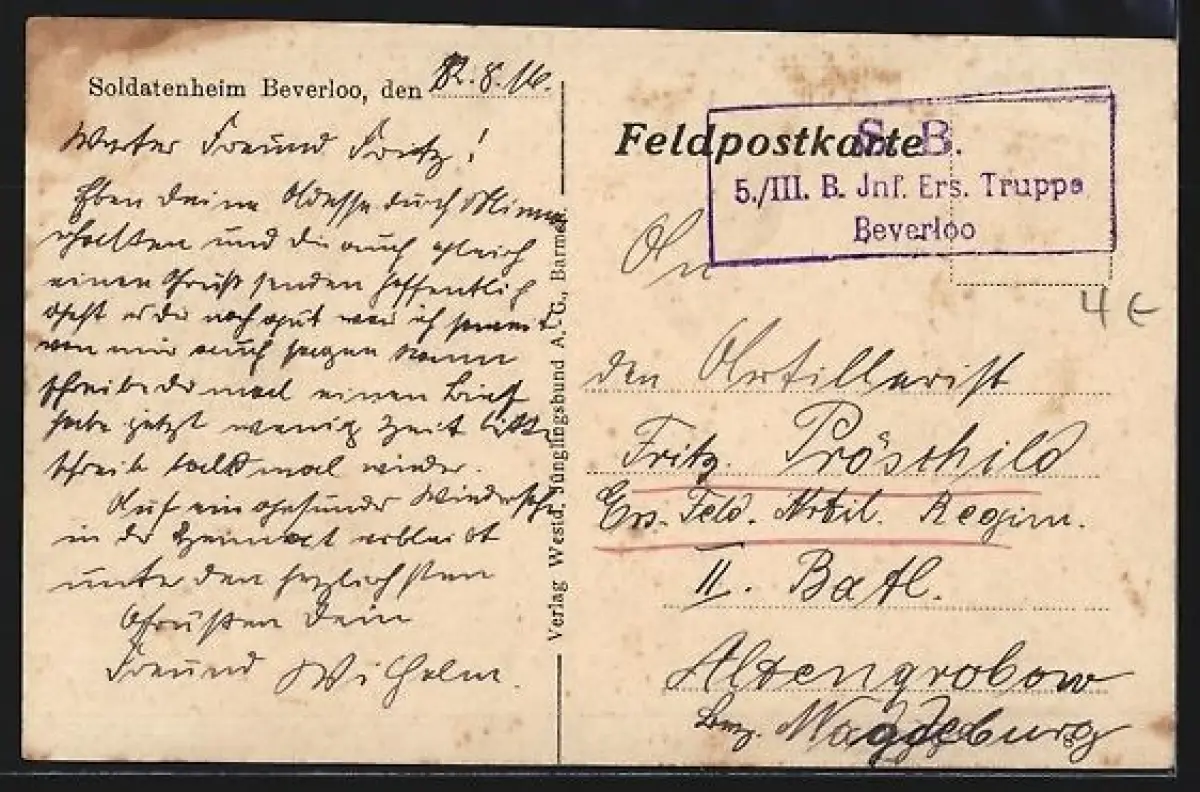 Soldatenheim Beverloo, den 12.8.16.
Werter Freund Fritz!
Eben deine Adresse durch Minna
erhalten und dir auch gleich
einen Gruß senden hoffentlich
geht es dir noch gut was ich somit
von mir auch sagen kann
schreibe dir mal einen Brief
habe jetzt wenig Zeit bitte
schreib bald mal wieder.
Auf ein gesundes Wiedersehn
in der Heimat verbleibt
unter den herzlichsten
Grüßen Dein
Freund Wilhelm.
Verlag Westd. Jünglingsbund A.-G., Barmen
Feldpostkarte
S. B.
5./III. B. Jnf. Ers. Truppe
Beverloo
4 €
An
den Artillerist
Fritz Pröschild
Ers. Feld. Artil. Regim.
II. Batl.
Altengrabow
Bez. Magdeburg